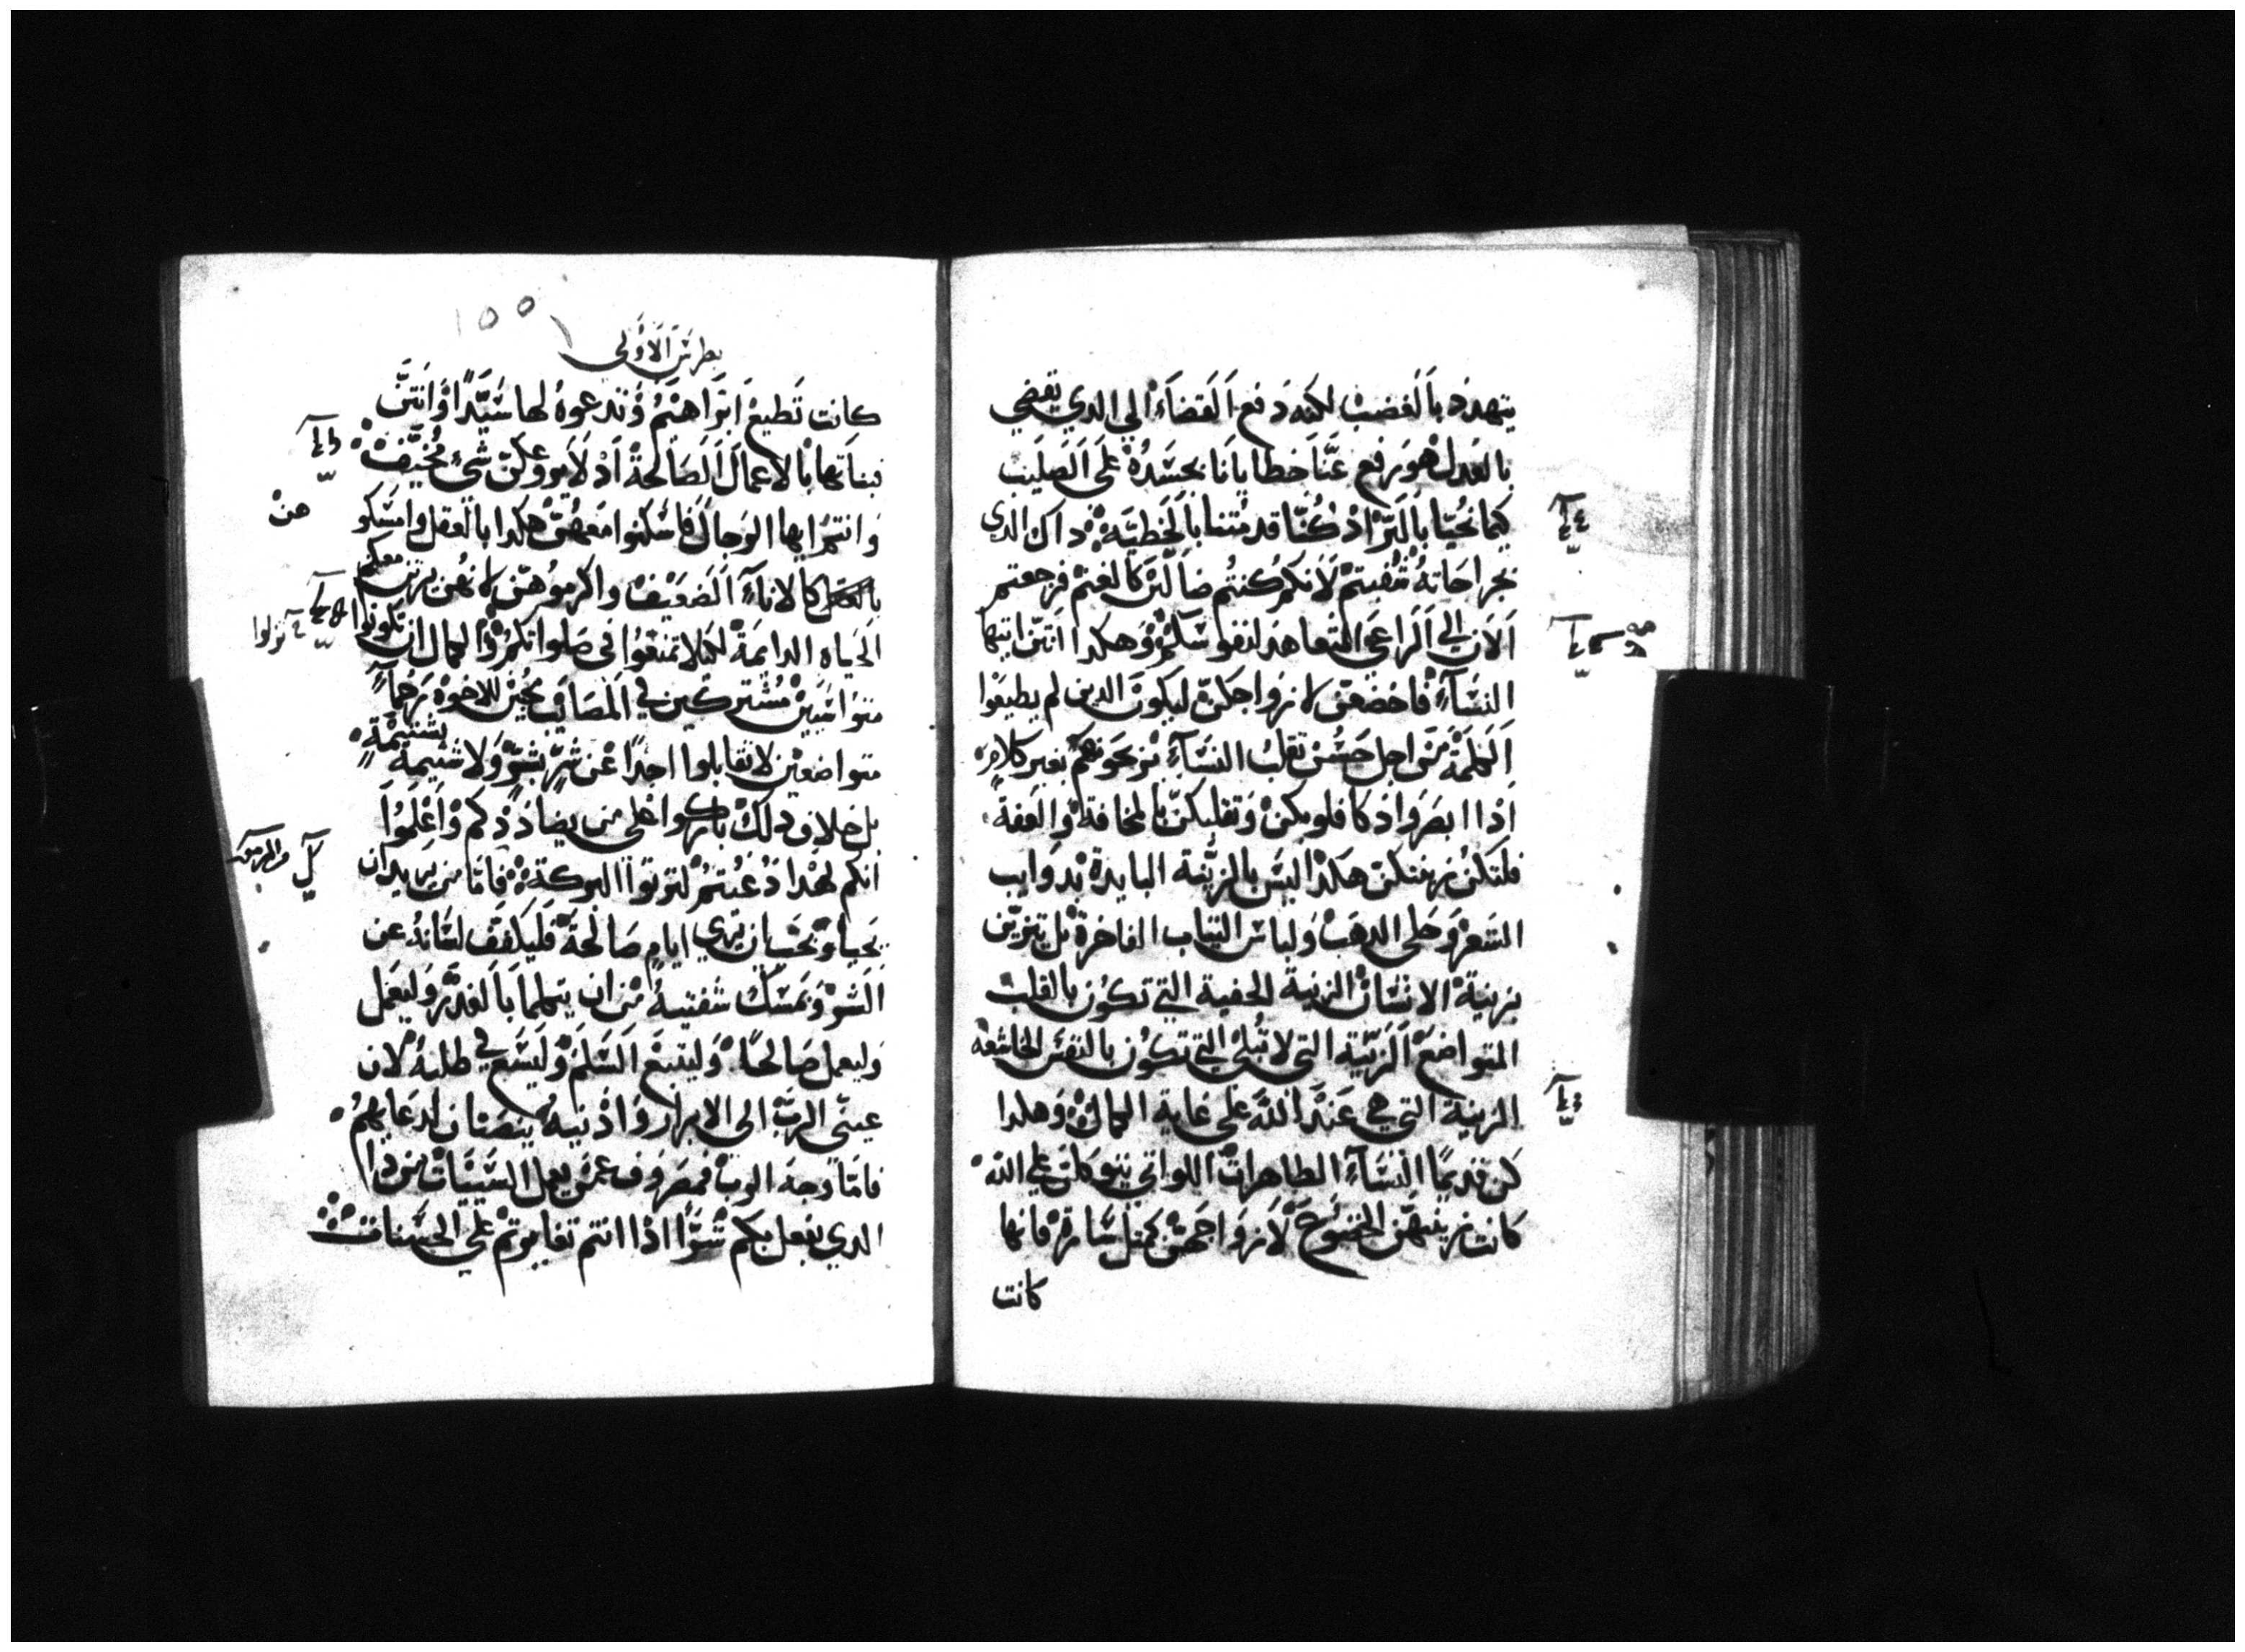 يتهدد بالغضب لكنه دفع القضاء الي الدي يقضي
بالعدل هو رفع عنا خطايانا بجسده علي الصليب
كيما نحيا بالبر اد كنا قد متنا بالخطية داك الدي
بجراحاته شفيتم لانكم كنتم ضالين كالغنم فرجعتم
الان الي الراعي المتعاهد لنفوسكم وهكدا انتن ايتها
النساء فاخضعن لازواجكن ليكون الدين لم يطيعوا
الكلمة من اجل حسن تقلب النساء يربحونهم بغير كلام
ادا ابصروا دكا قلوبكن وتقلبكن بالمخافة والعفة
فلتكن زينتكن هكدا ليس بالزينة البايدة بدوايب
الشعر وحلي الدهب ولباس التياب الفاخرة بل يتزين
بزينة الانسان الزينة الخفية التي تكون بالقلب
المتواضع الزينة التي لا تبلي التي تكون بالنفس الخاشعة
الزينة التي هي عند الله علي غاية الكمال وهكدا
كن قديما النساء الطاهرات اللواتي يتوكلن علي الله
كانت زينتهن الخضوع لازواجهن كمتل سارة فانها
كانت
١٥٥
بطرس الاولي
كانت تطيع ابراهيم وتدعوه لها سيدا وانتن
بناتها بالاعمال الصالحة اد لا يروعكن شي مخيف
وانتم ايها الرجال فاسكنوا معهن هكدا بالعقل وامسكو
هن
كالاناء الضعيف واكرموهن لانهن يرتن معكم
الحياه الدايمة لكيلا تمنعوا في صلواتكم والكمال ان تكونوا
متواسيين مشتركين في المصايب محبين للاخوة رحماء
متواضعين لا تقابلوا احدا عن شر بشر ولا شتيمة
بشتيمة
بل خلاف دلك باركوا علي من يضاددكم واعلموا
انكم لهدا دعيتم لترتوا البركة فاما من يريد ان
يحيا ويحب ان يري ايام صالحة فليكفف لسانه عن
الشر ويمسك شفتيه من ان يتكلما بالغدر وليعمل
وليعمل صالحا وليتبع السلم وليسع في طلبه لان
عيني الرب الي الابرار وادنيه ينصتان لدعايهم
فاما وجه الرب فمصروف عمن يعمل السييات من دا
الدي يفعل بكم شرا ادا انتم تغايرتم علي الحسنات